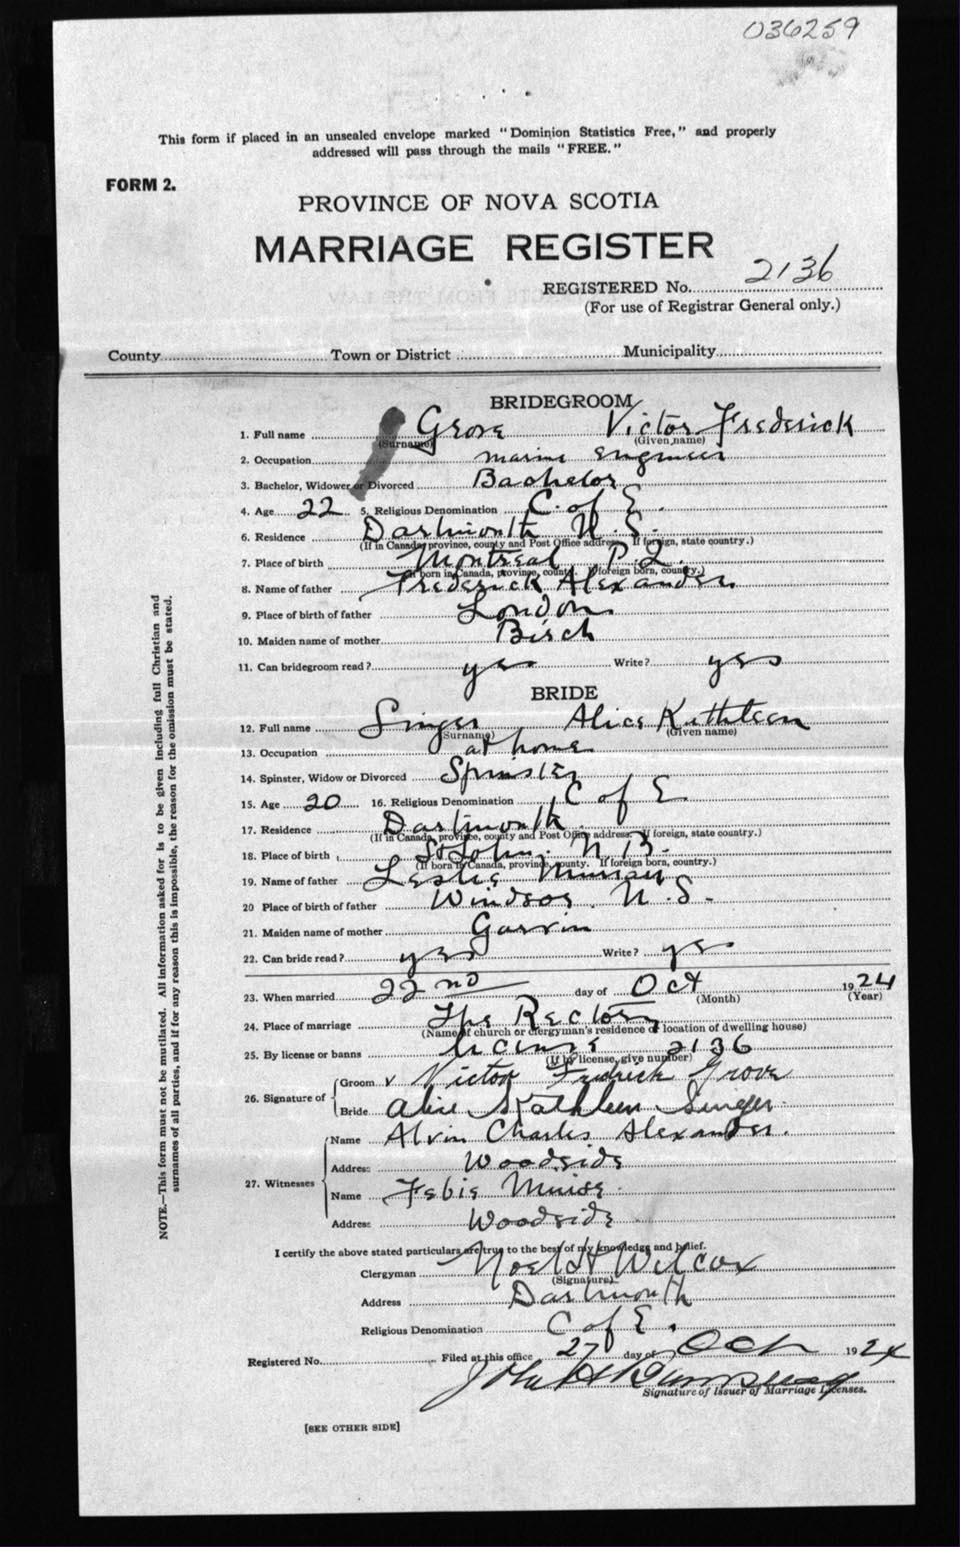 036259
This form if placed in an unsealed envelope marked "Dominion Statistics Free," and properly
addressed will pass through the mails "FREE."
FORM 2.
PROVINCE OF NOVA SCOTIA
MARRIAGE REGISTER
REGISTERED No. 2136
(For use of Registrar General only.)
County Town or District Municipality
BRIDEGROOM
1. Full name Grove Victor Frederick
(Surname) (Given name)
2. Occupation marine engineer
3. Bachelor, Widower or Divorced Bachelor
4. Age 22 5. Religious Denomination C. of E.
6. Residence Dartmouth N.S.
(If in Canada, province, county and Post Office address. If foreign, state country.)
7. Place of birth Montreal P.Q.
(If born in Canada, province, county. If foreign born, country.)
8. Name of father Frederick Alexander
9. Place of birth of father London
10. Maiden name of mother Birch
11. Can bridegroom read? yes Write? yes
BRIDE
12. Full name Singer Alice Kathleen
(Surname) (Given name)
13. Occupation at home
14. Spinster, Widow or Divorced Spinster
15. Age 20 16. Religious Denomination C of E
17. Residence Dartmouth
(If in Canada, province, county and Post Office address. If foreign, state country.)
18. Place of birth St John. N.B.
(If born in Canada, province, county. If foreign born, country.)
19. Name of father Leslie Murray
20 Place of birth of father Windsor. N.S.
21. Maiden name of mother Garvin
22. Can bride read? yes Write? yes
23. When married 22nd day of Oct 1924
(Month) (Year)
24. Place of marriage The Rectory
(Name of church or clergyman's residence or location of dwelling house)
25. By license or banns license 2136
(If by license, give number)
26. Signature of Groom v Victor Fredrick Grove
Bride Alice Kathleen Singer
27. Witnesses Name Alvin Charles Alexander.
Address Woodside
Name Febie Muise
Address Woodside
I certify the above stated particulars are true to the best of my knowledge and belief.
Clergyman Noel H Wilcox
(Signature)
Address Dartmouth
Religious Denomination C of E.
Registered No. Filed at this office 27 day of Oct 1924
John H
Signature of Issuer of Marriage Licenses.
[SEE OTHER SIDE]
NOTE.—This form must not be mutilated. All information asked for is to be given including full Christian and
surnames of all parties, and if for any reason this is impossible, the reason for the omission must be stated.